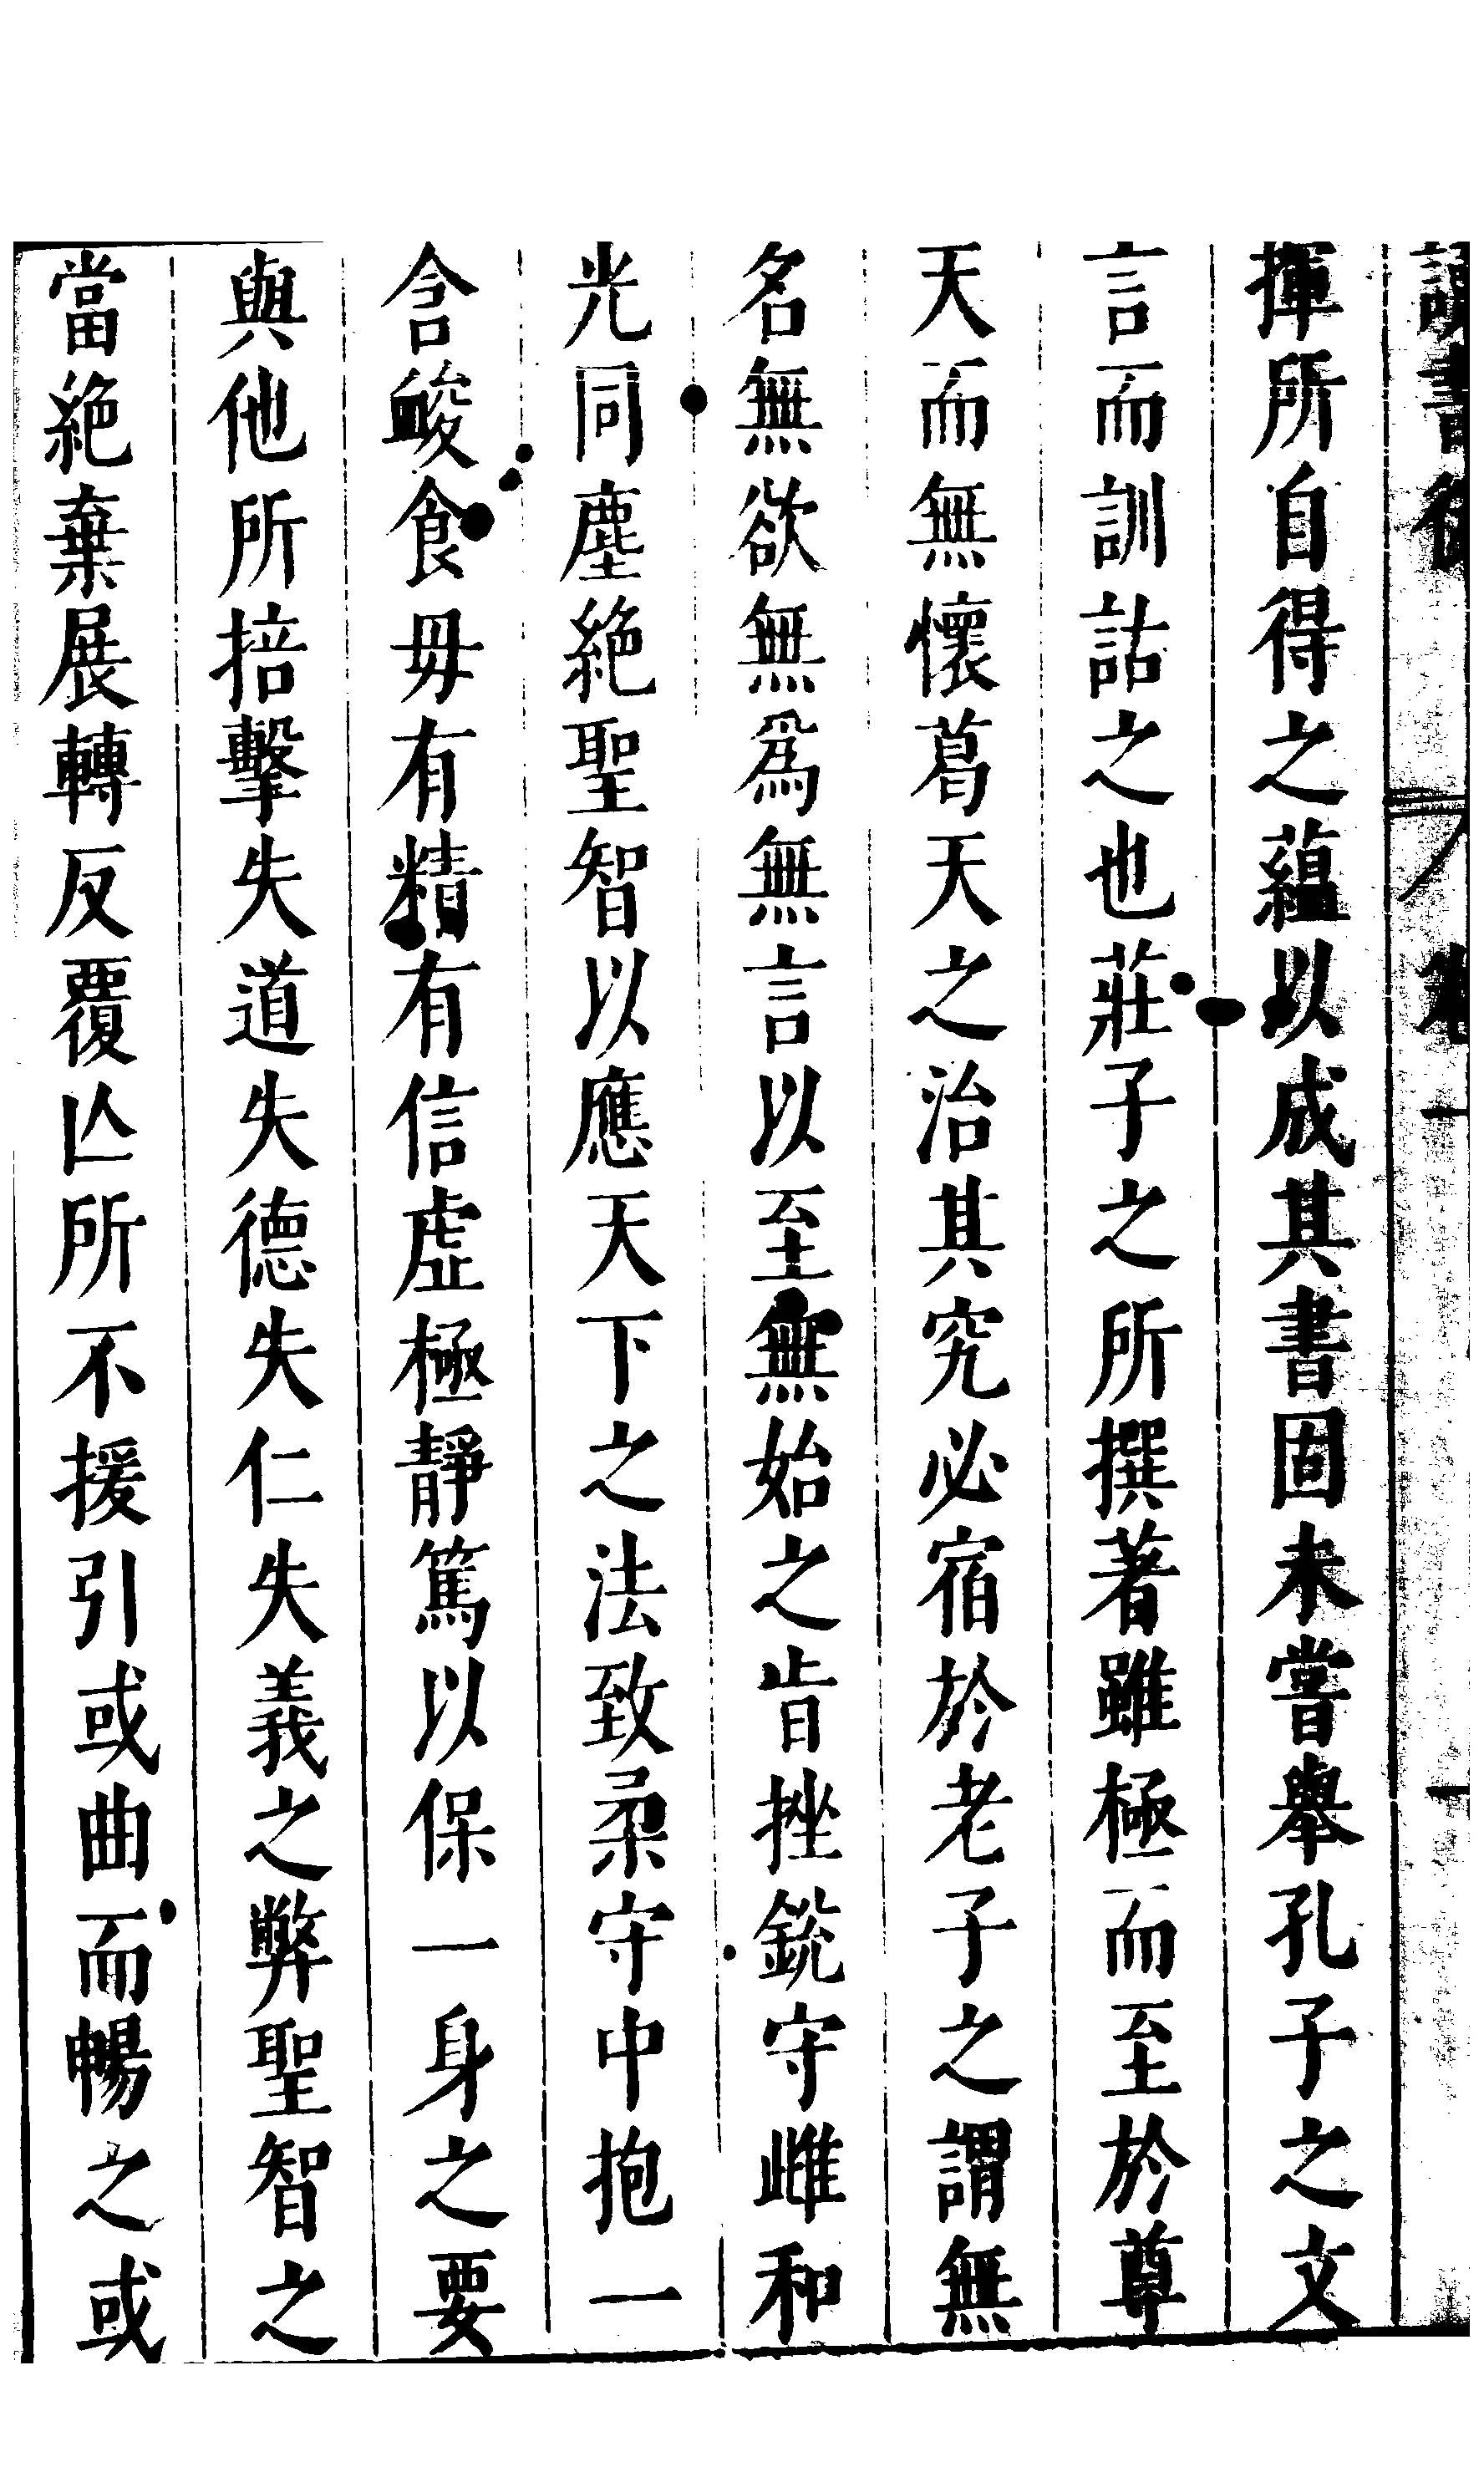 讀書後 卷一 一
揮所自得之蘊以成其書固未嘗舉孔子之文
言而訓詁之也莊子之所撰著雖極而至於尊
天而無懷葛天之治其究必宿於老子之謂無
名無欲無爲無言以至無始之㫖挫銳守雌和
光同塵絶聖智以應天下之法致柔守中抱一
含䘒食毋有精有信虛極靜篤以保一身之要
與他所掊擊失道失德失仁失義之弊聖智之
當絶棄展轉反覆亾所不援引或曲而暢之或